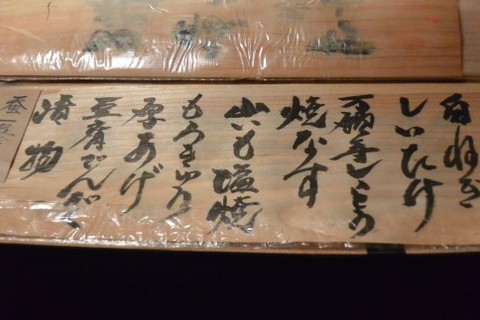 白ねぎ
しいたけ
万願寺しとう
焼なす
山いも塩焼
もろきゅう
厚あげ
豆腐でんがく
漬物